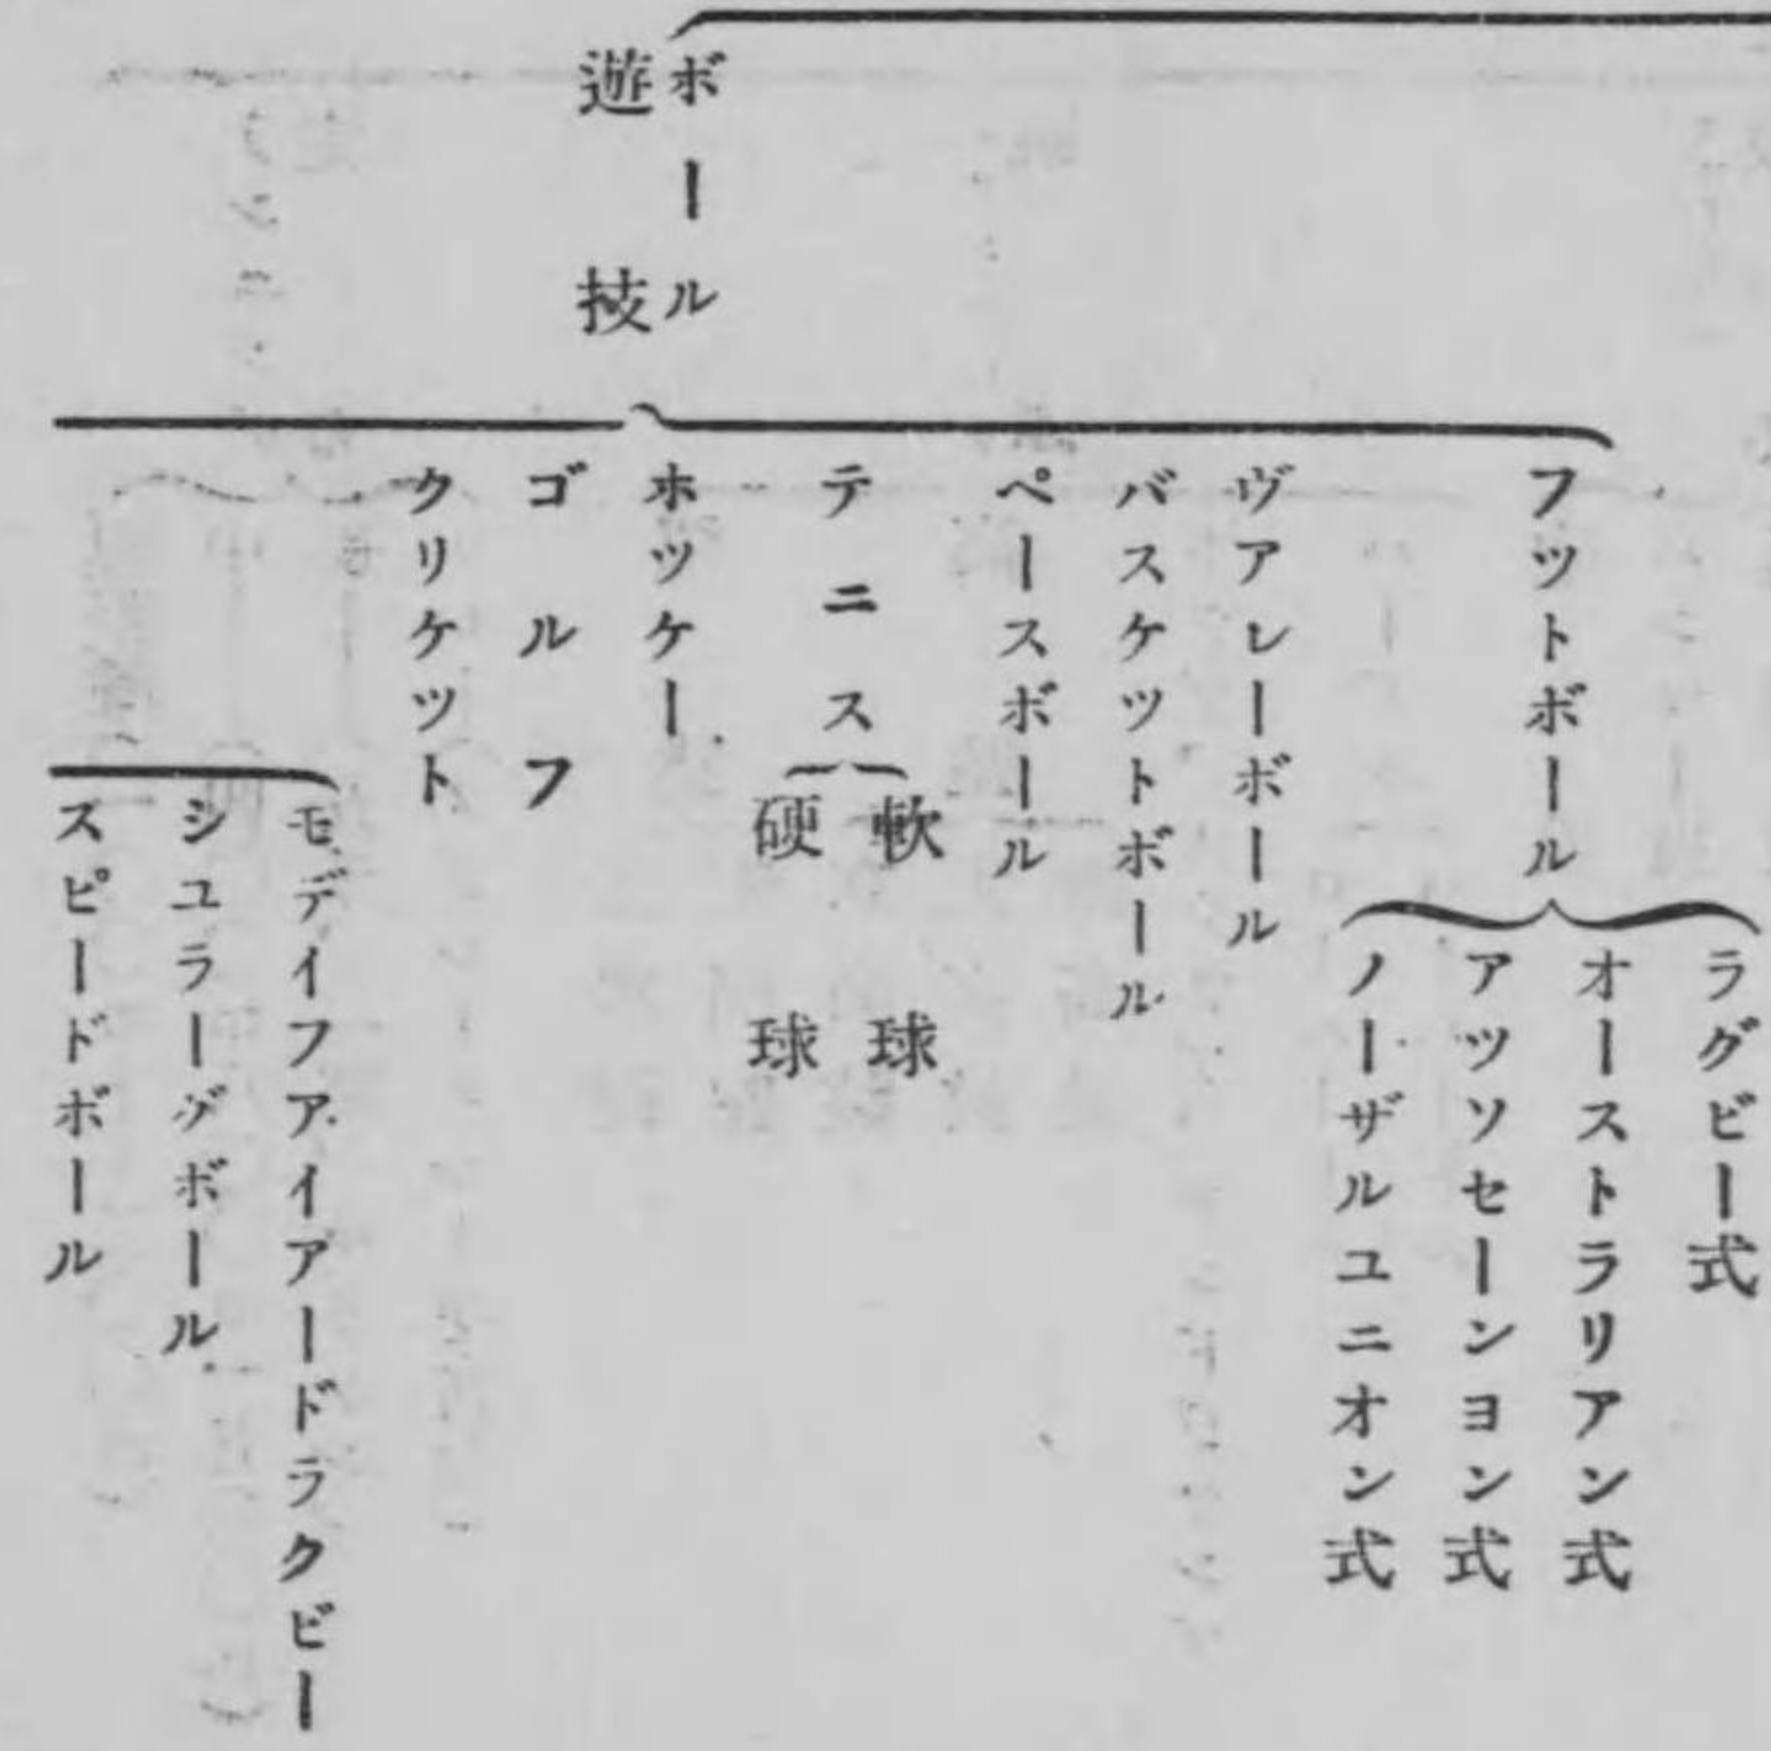 ボール
遊技
フツトボール
ラグビー式
オーストラリアン式
アツソセーンヨン式
ノーザルユニオン式
ヴアレーボール
バスケツトボール
ペースボール
テニス
軟球
硬球
ホツケー
ゴルフ
クリケツト
モデイフアイアードラクビー
シユラーゲボール
スピードボール